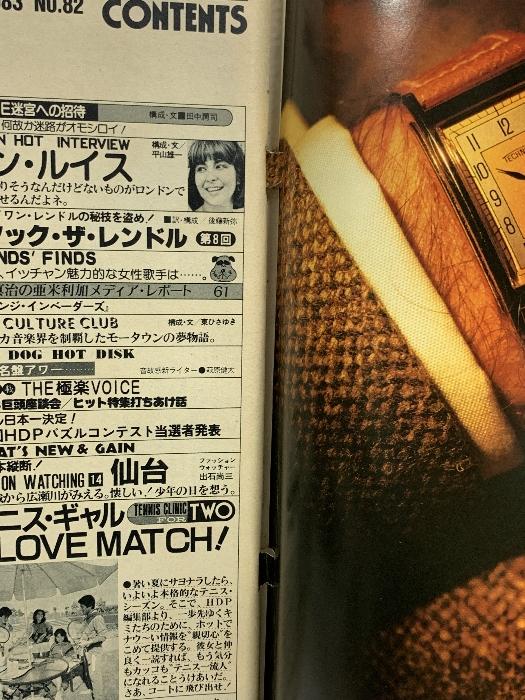 83 NO.82
CONTENTS
E迷宮への招待
構成・文■田中潤司
何故か迷路がオモシロイ!
N HOT INTERVIEW
構成・文/
平山雄一
ン・ルイス
りそうなんだけどないものがロンドンで
せるんだよネ。
イワン・レンドルの秘技を盗め!
■訳・構成/後藤新弥
ック・ザ・レンドル 第8回
NDS' FINDS
、イツチャン魅力的な女性歌手は……。
真治の亜米利加メディア・レポート 61
ンジ・インベーダーズ』
CULTURE CLUB
構成・文/東ひさゆき
カ音楽界を制覇したモータウンの夢物語。
DOG HOT DISK
名盤アワー
音故感新ライター●萩原健太
THE極楽VOICE
巨頭座談会/ヒット特集打ちあけ話
ル日本一決定!
HDPパズルコンテスト当選者発表
AT'S NEW & GAIN
本縦断!
ON WATCHING 14 仙台
ファッション
ウォッチャー
出石尚三
から広瀬川がみえる。懐しい!少年の日を想う。
ニス・ギャル
TENNIS CLINIC
FOR TWO
LOVE MATCH!
●暑い夏にサヨナラしたら、
いよいよ本格的なテニス・
シーズン。そこで、HDP
編集部より、一歩先ゆくキ
ミたちのために、ホットで
ナウ〜い情報を"親切心"を
こめて提供する。彼女と仲
良く一読すれば、もう気分
もカッコも"テニス一流人"
になれることうけあいだ。
さあ、コートに飛び出せ!
11
12
10
9
8
7
TECHN